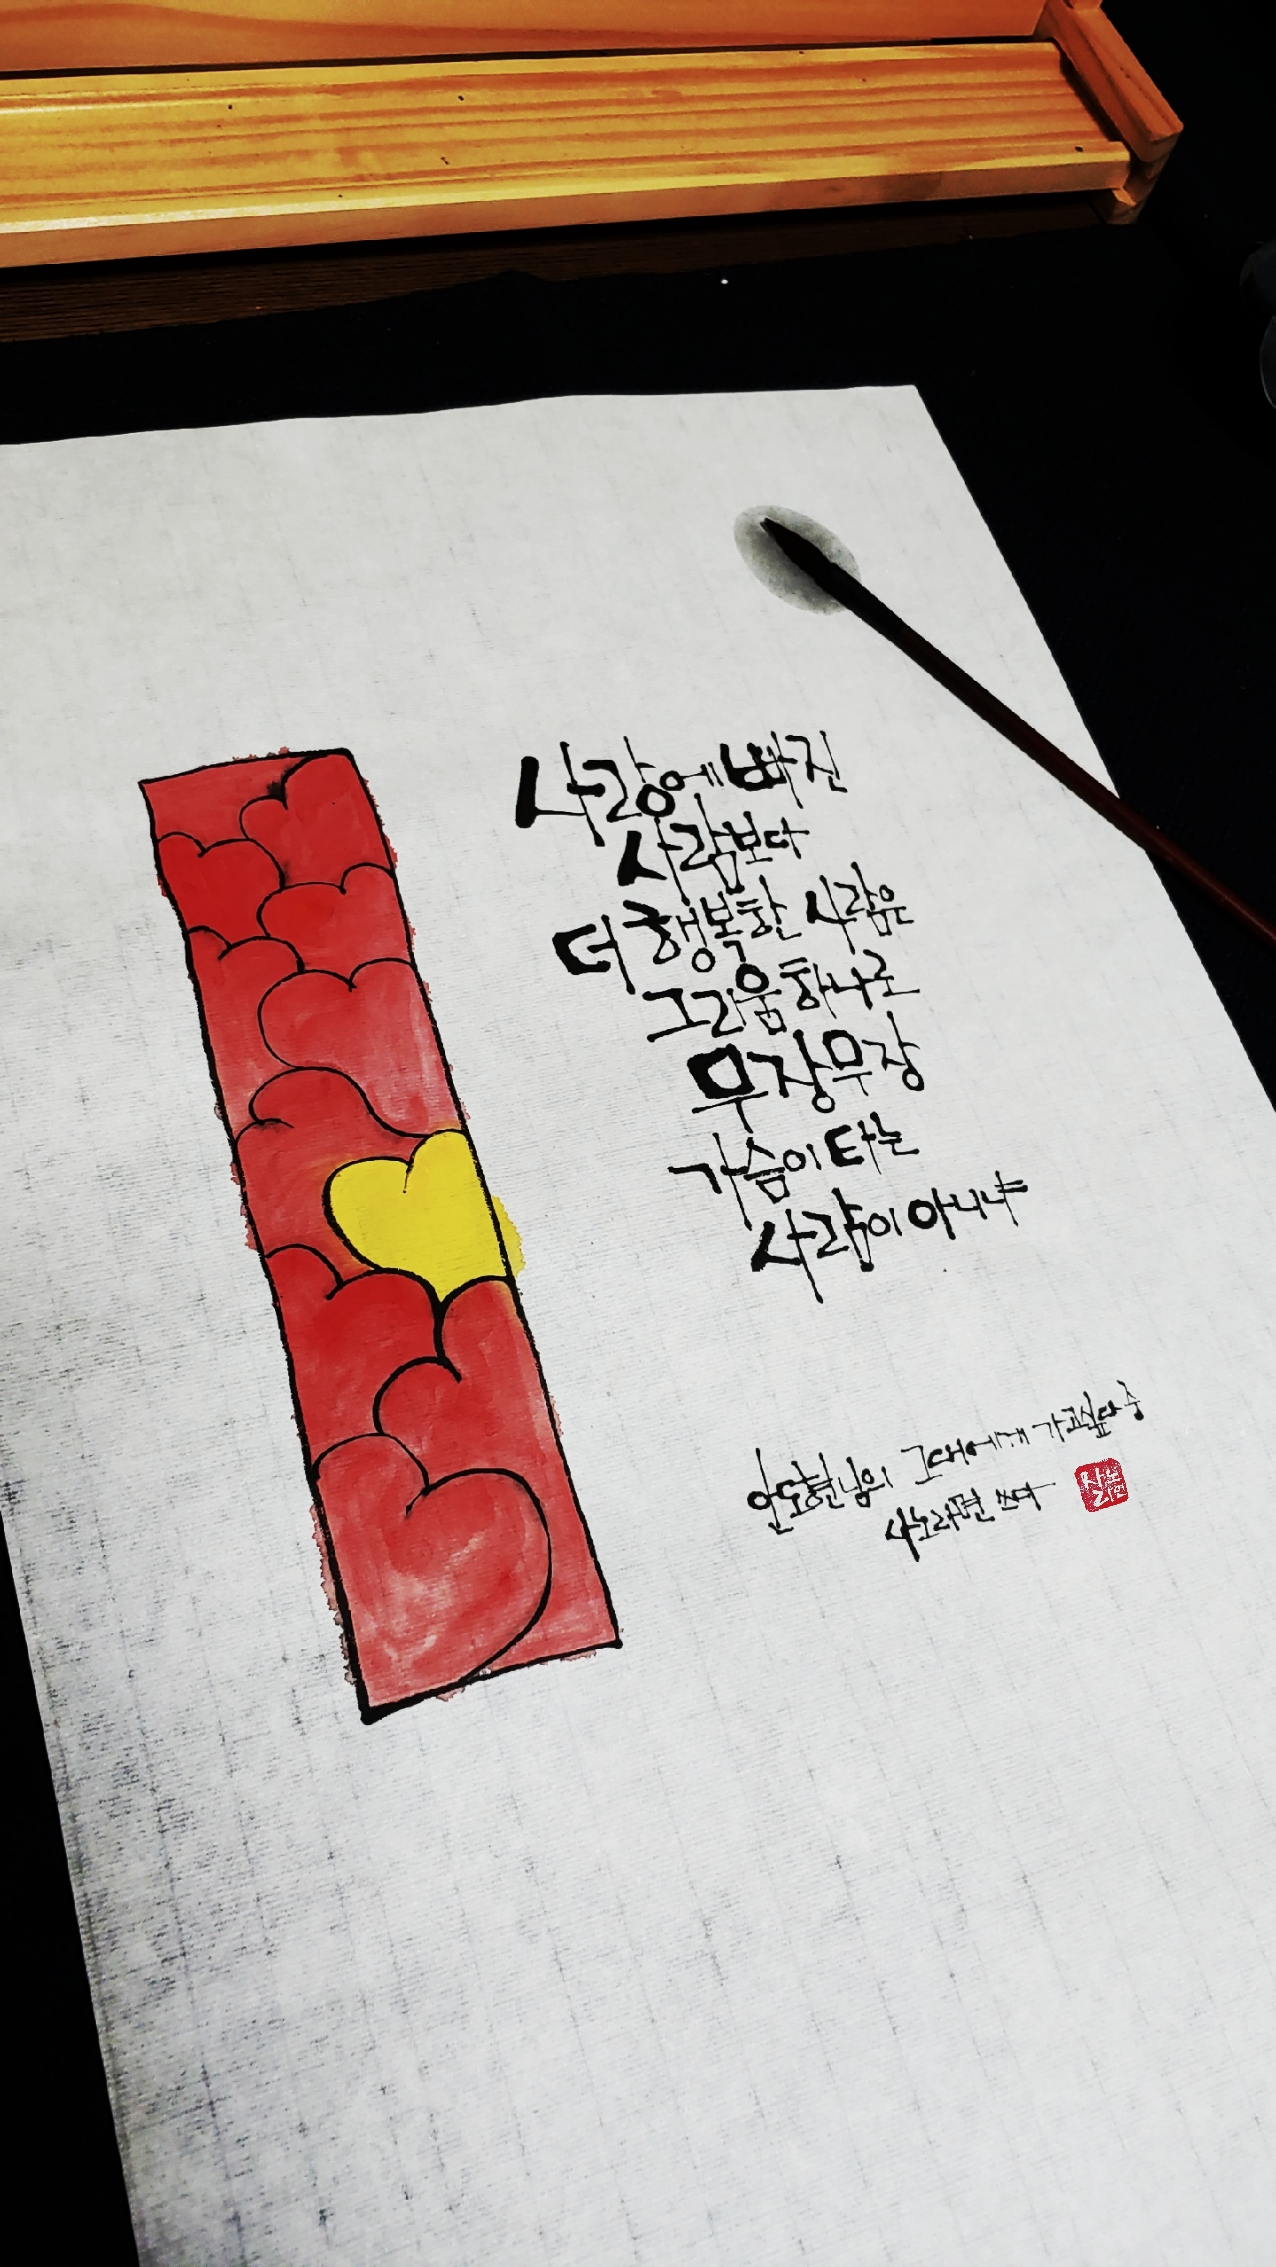 사랑에 빠진
사람보다
더 행복한 사람은
그리움 하나로
무장무장
가슴이 타는
사람이 아니냐
안도현님의 그대에게 가고싶다 중
사노라면 쓰다